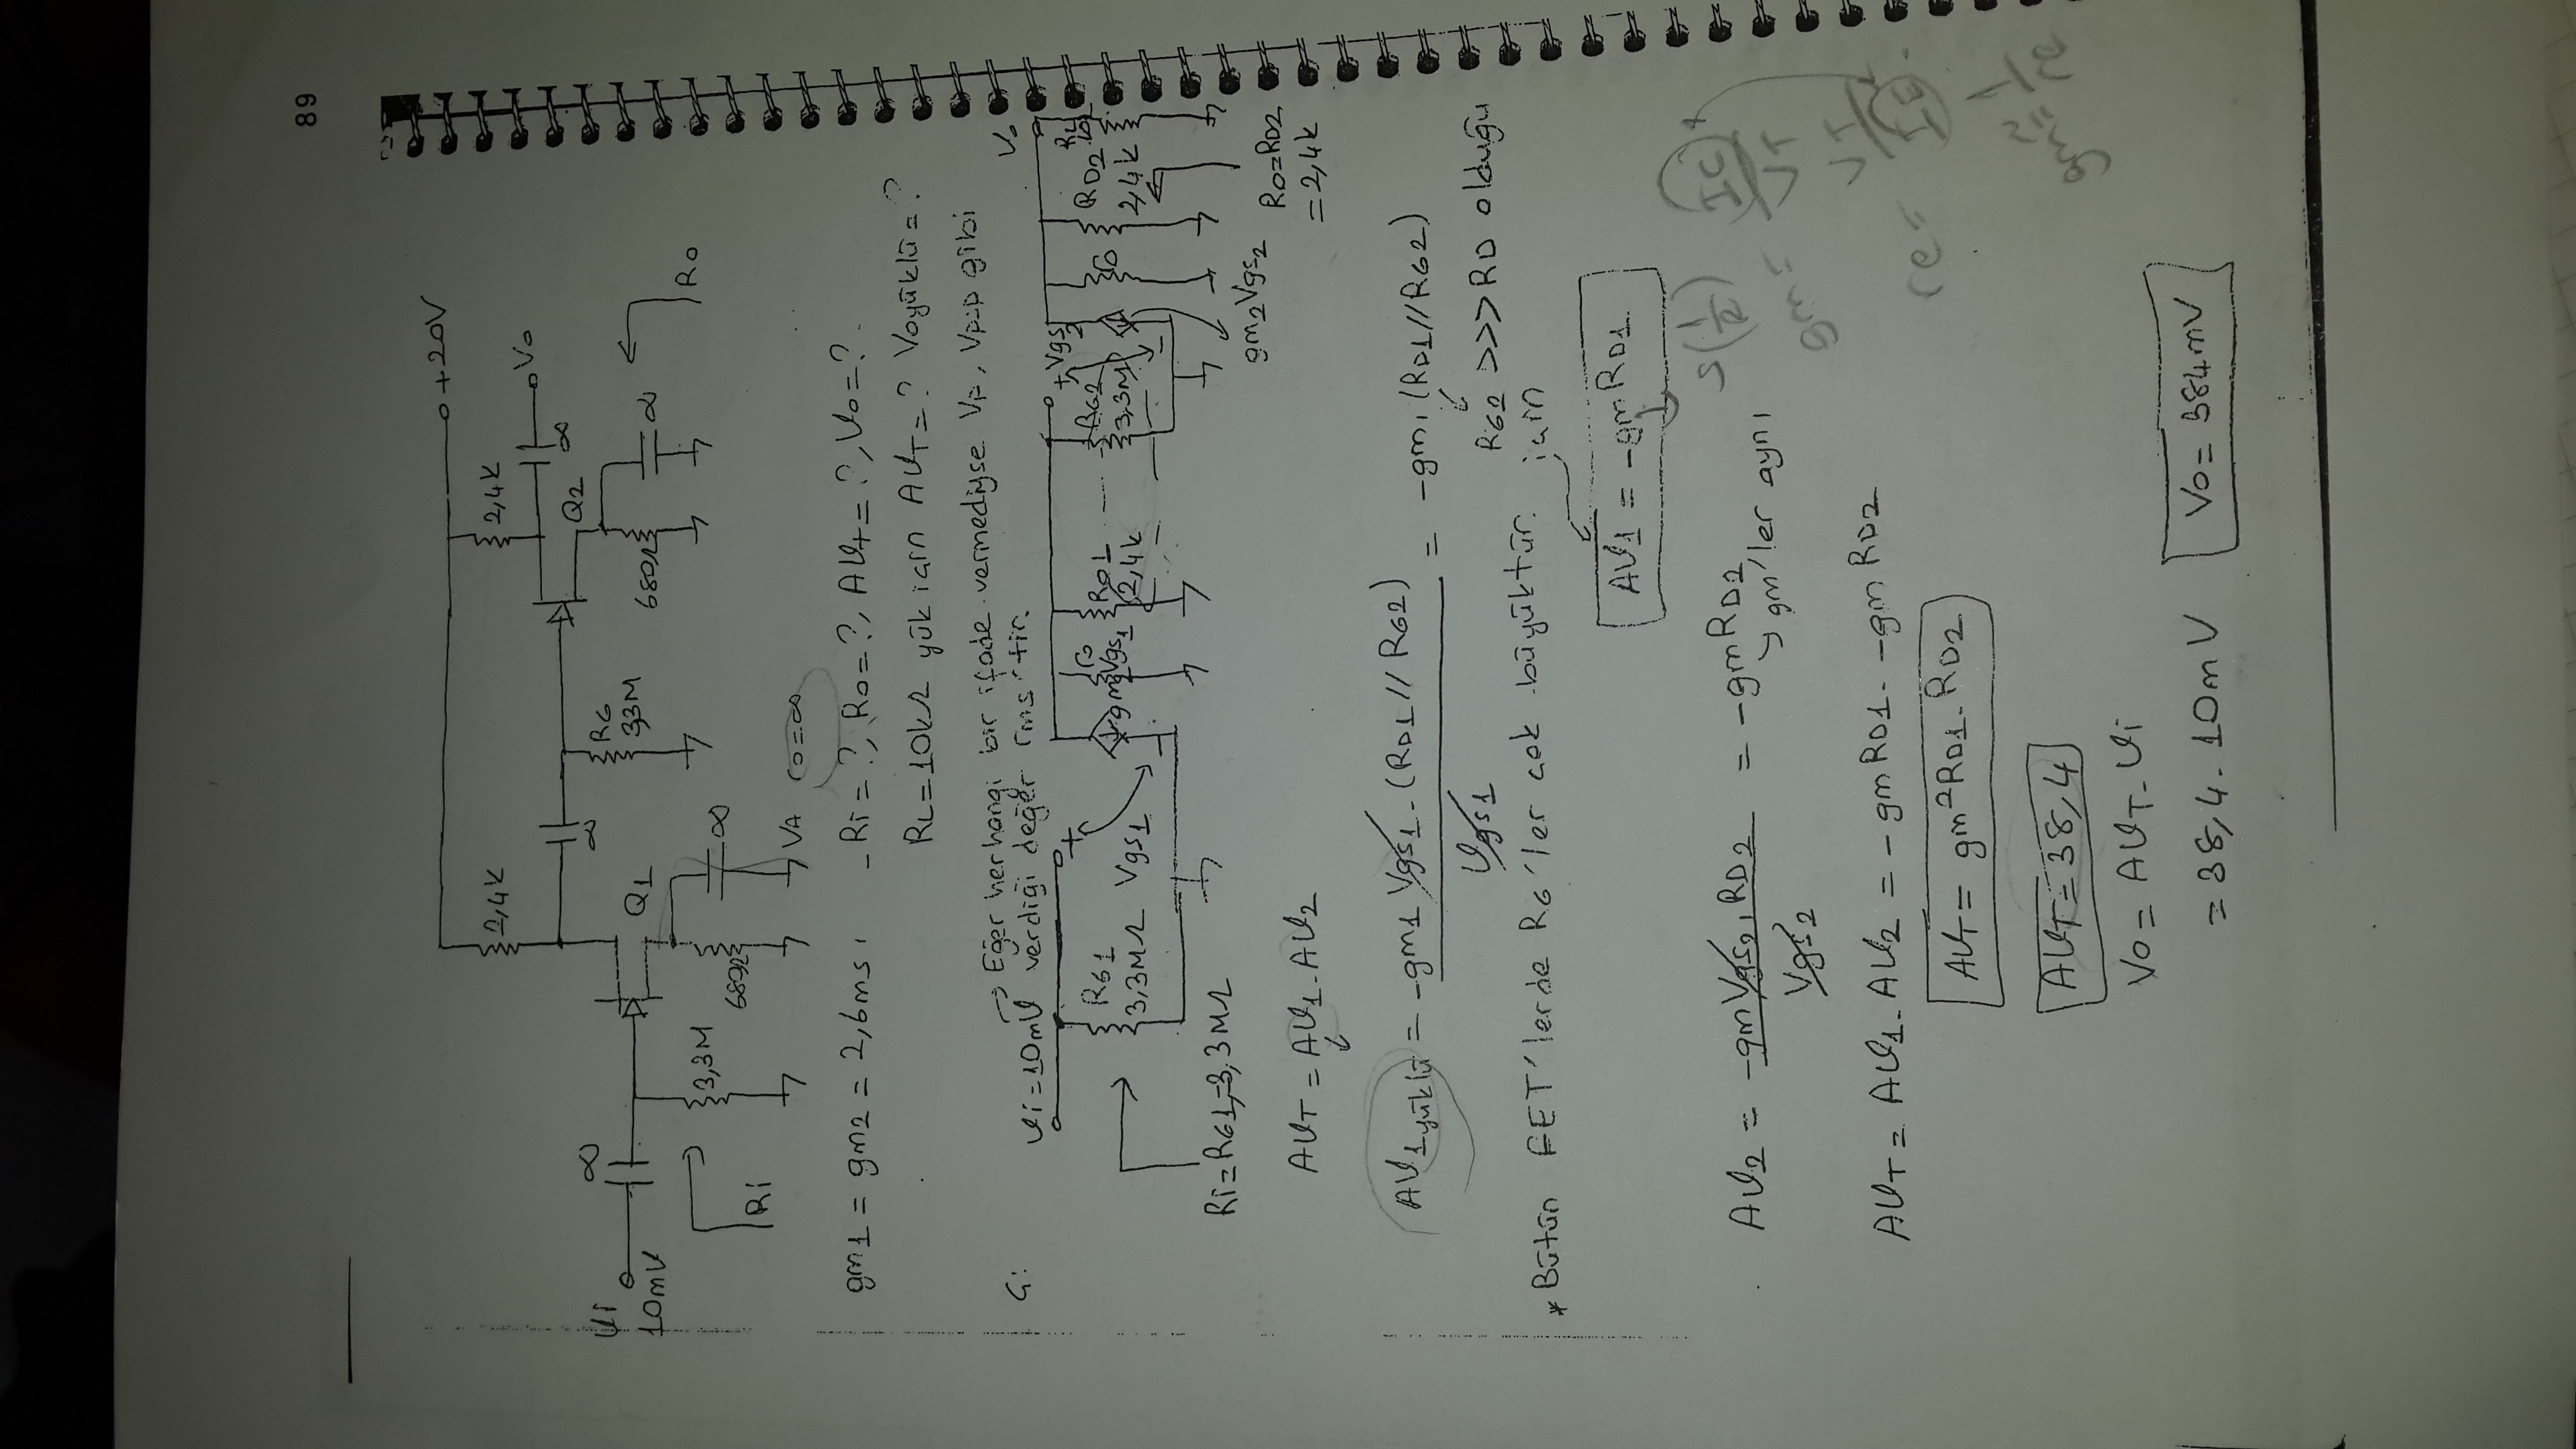 89
+20V
2,4K
2,4K
Vo
∞
Q2
∞
∞
Vi
10mV
RG
3,3M
Q1
680Ω
∞
Ro
3,3M
680Ω
∞
Ri
VA ro=∞
gm1 = gm2 = 2,6ms, -Ri=?, Ro=?, AVt=?, Vo=?
RL=10kΩ yük için AVT=? Voyüklü=?
→ Eğer herhangi bir ifade vermediyse Vp, Vp-p gibi
Ç: Vi=10mV verdiği değer rms'tir.
Vo
+
+Vgs2
RG1
3,3MΩ
Vgs1
gmVgs1
ro
RD1
2,4k
RG2
3,3M
ro
RD2
2,4k
RL
-
-
Ri=RG1=3,3MΩ
gm2Vgs2
Ro=RD2
=2,4k
AVT = AV1.AV2
AV1yüklü = -gm1 Vgs1.(RD1//RG2) / Vgs1 = -gm1(RD1//RG2)
RG2 >>>RD olduğu
için
* Bütün FET'lerde RG'ler çok büyüktür.
AV1 = -gmRD1
S(1/R)
AV2 = -gmVgs2.RD2 / Vgs2 = -gmRD2
→ gm'ler aynı
gm = IC/VT
AVT = AV1.AV2 = -gmRD1. -gmRD2
re = VT/IE
AVT= gm²RD1.RD2
gm ≅ 1/re
AVT=38,4
Vo = AVT.Vi
= 38,4.10mV
Vo= 384mV